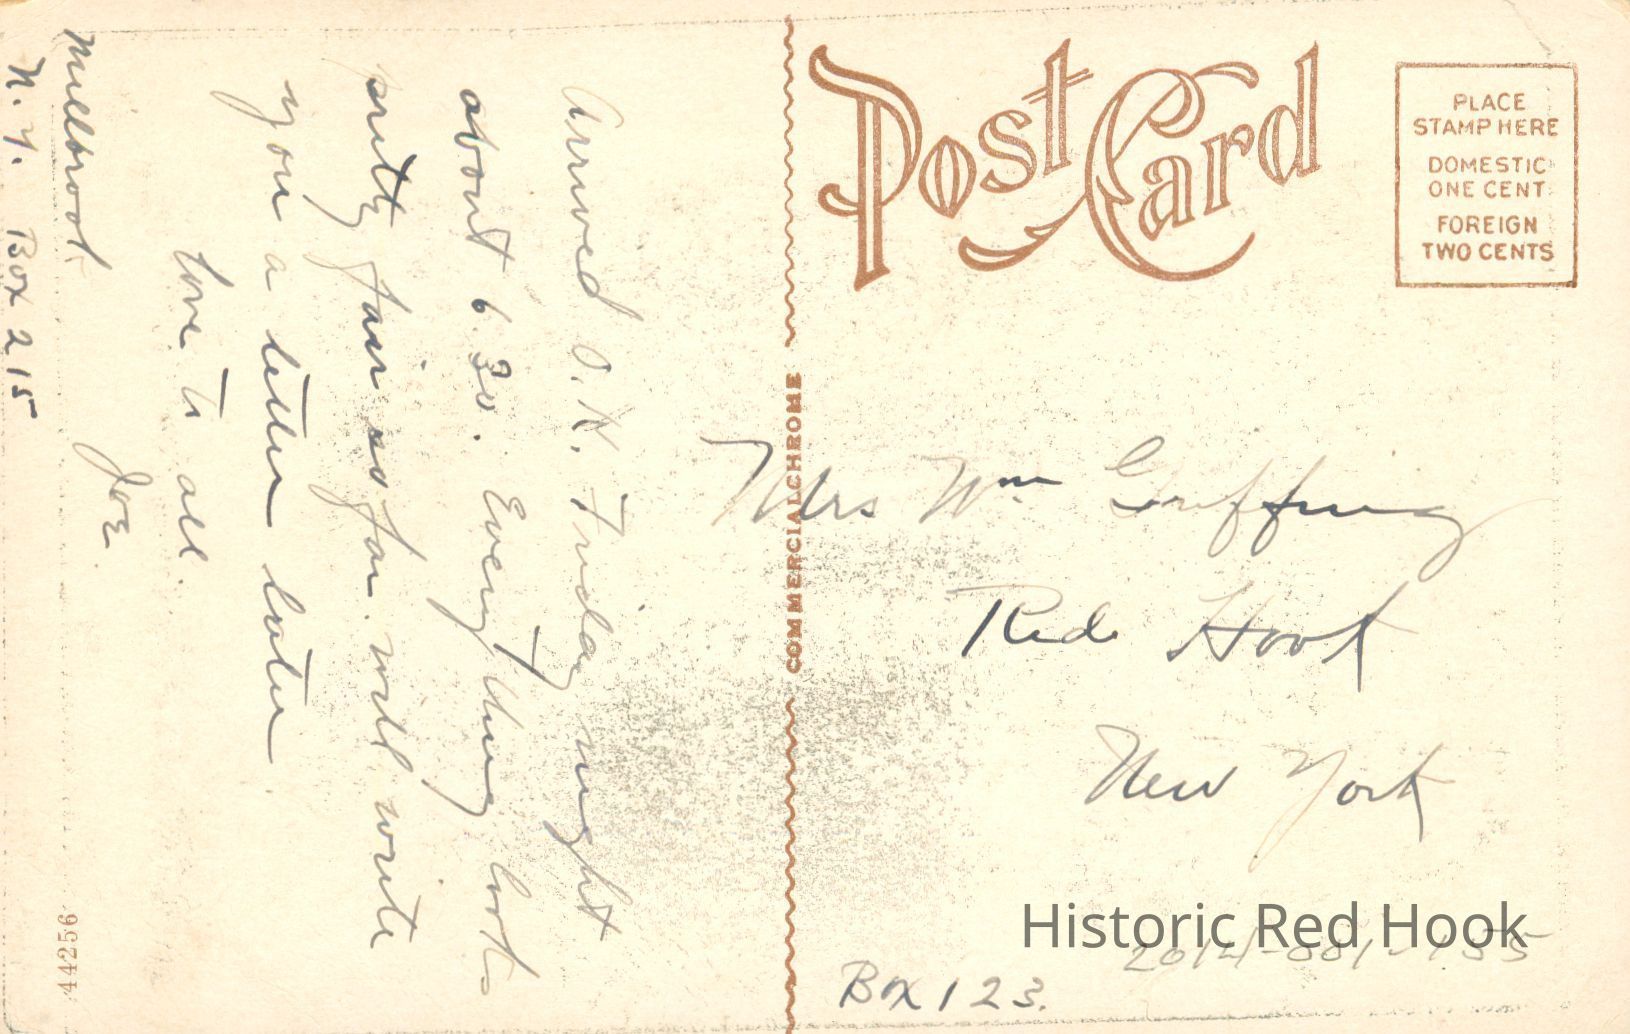 Post Card
PLACE
STAMP HERE
DOMESTIC
ONE CENT
FOREIGN
TWO CENTS
COMMERCIALCHROME
Arrived O.K. Friday night
about 6.30. Everything looks
pretty fair so far. will write
you a letter later
Love to all.
Joe
Millbrook
N.Y. Box 215
44256
Mrs Wm Griffing
Red Hook
New York
Box 123.
Historic Red Hook